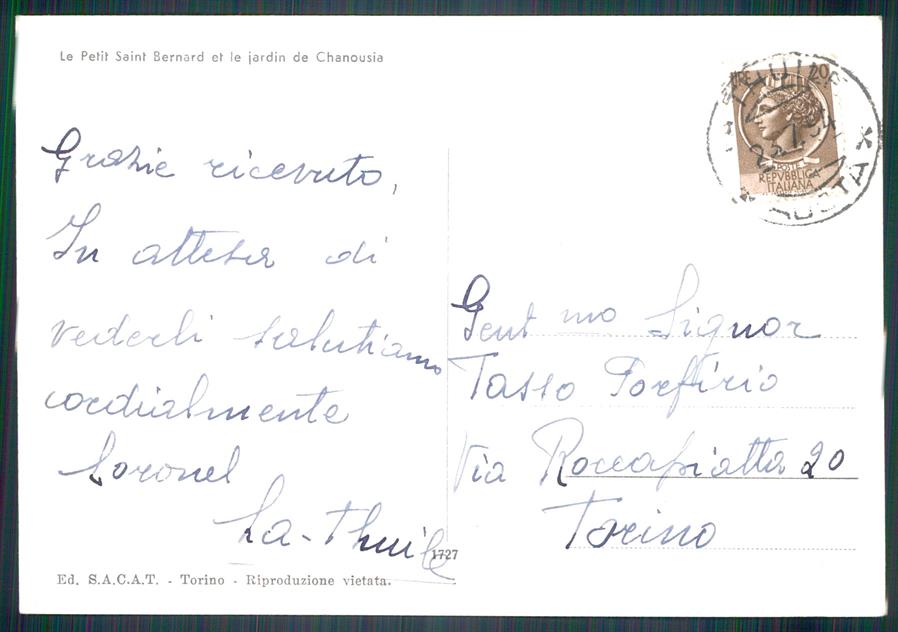 Le Petit Saint Bernard et le jardin de Chanousia
Grazie ricevuto,
In attesa di
vederli salutiamo
cordialmente
Coronel
La-Thuile
1727
Ed. S.A.C.A.T. - Torino - Riproduzione vietata.
LIRE 20
POSTE
REPVBBLICA
ITALIANA
THUILE
AOSTA
Gent mo Signor
Tasso Porfirio
Via Roccapiatta 20
Torino